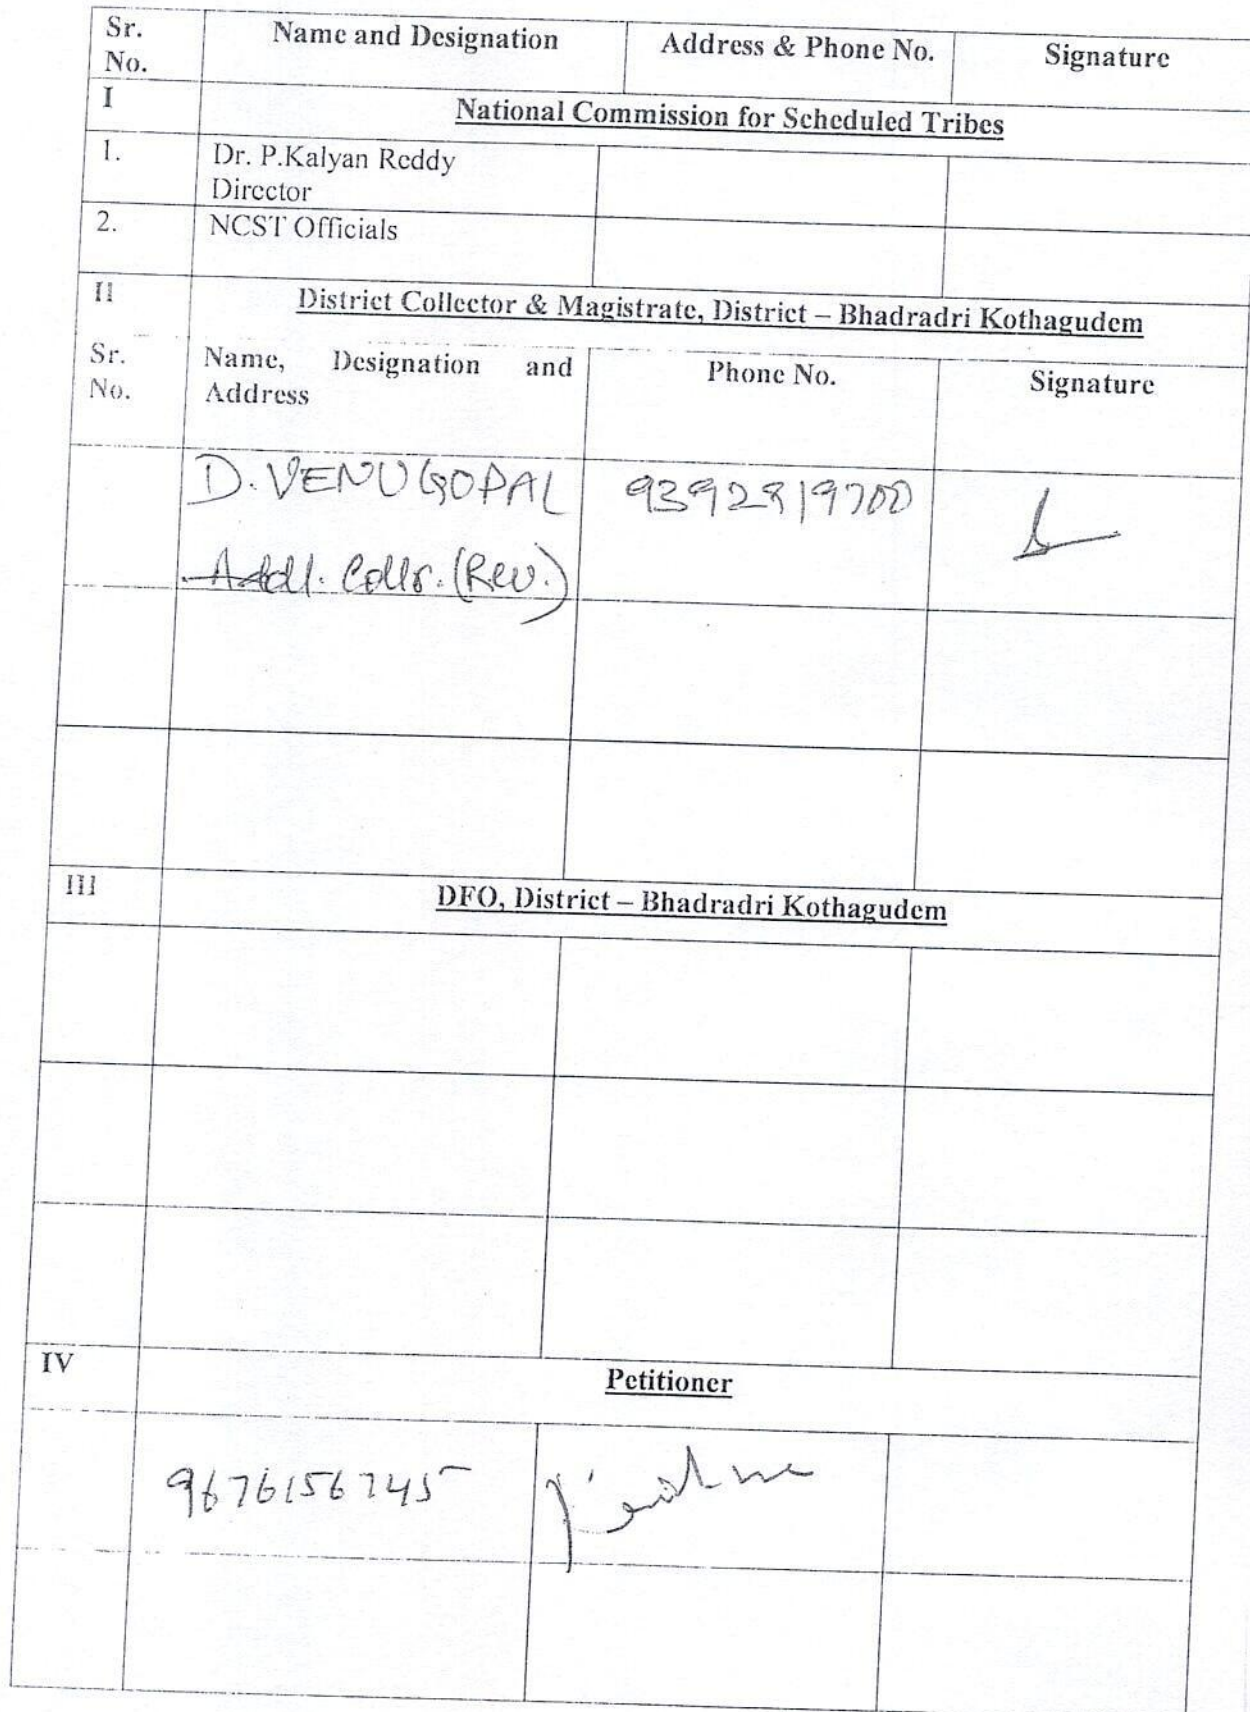 Sr. No.
Name and Designation
Address & Phone No.
Signature
I
National Commission for Scheduled Tribes
1.
Dr. P.Kalyan Reddy
Director
2.
NCST Officials
II
District Collector & Magistrate, District – Bhadradri Kothagudem
Sr. No.
Name, Designation and
Address
Phone No.
Signature
D. VENUGOPAL
9392819700
Addl. Collr. (Rev.)
III
DFO, District – Bhadradri Kothagudem
IV
Petitioner
9676156745